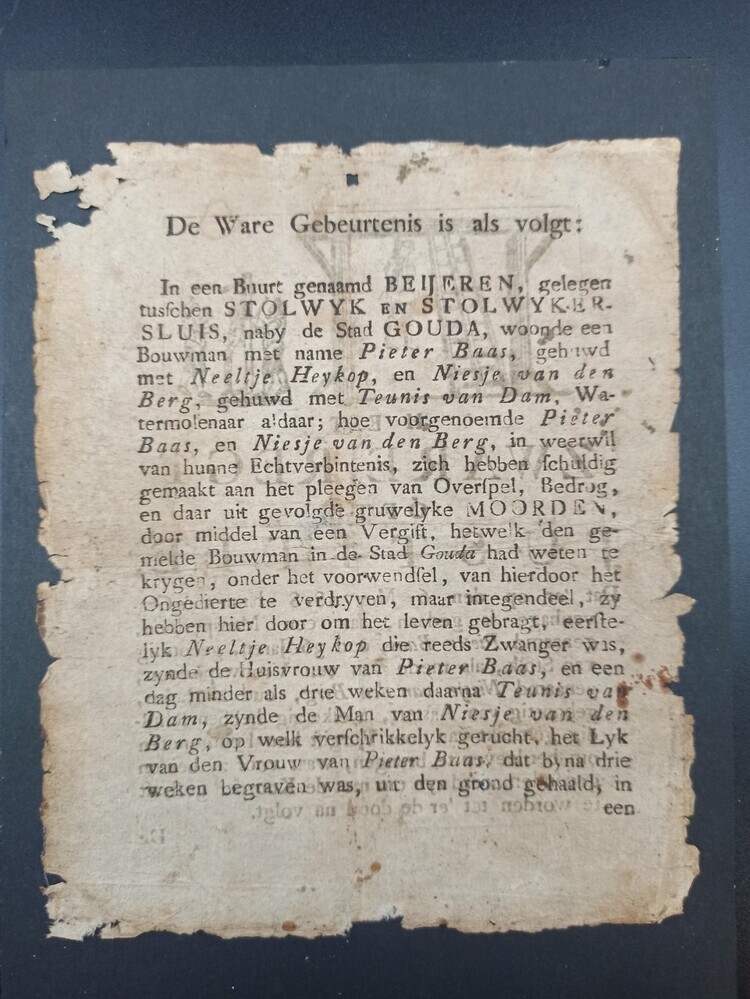 De Ware Gebeurtenis is als volgt:
In een Buurt genaamd BEIJEREN, gelegen
tusſchen STOLWYK EN STOLWYKER-
SLUIS, naby de Stad GOUDA, woonde een
Bouwman met name Pieter Baas, gehuwd
met Neeltje Heykop, en Niesje van den
Berg, gehuwd met Teunis van Dam, Wa-
termolenaar aldaar; hoe voorgenoemde Pieter
Baas, en Niesje van den Berg, in weerwil
van hunne Echtverbintenis, zich hebben ſchuldig
gemaakt aan het pleegen van Overſpel, Bedrog,
en daar uit gevolgde gruwelyke MOORDEN,
door middel van een Vergift, hetwelk den ge-
melde Bouwman in de Stad Gouda had weten te
krygen, onder het voorwendſel, van hierdoor het
Ongedierte te verdryven, maar integendeel, zy
hebben hier door om het leven gebragt, eerſte-
lyk Neeltje Heykop die reeds Zwanger was,
zynde de Huisvrouw van Pieter Baas, en een
dag minder als drie weken daarna Teunis van
Dam, zynde de Man van Niesje van den
Berg, op welk verſchrikkelyk gerucht, het Lyk
van den Vrouw van Pieter Baas, dat byna drie
weken begraven was, uit den grond gehaald, in
een